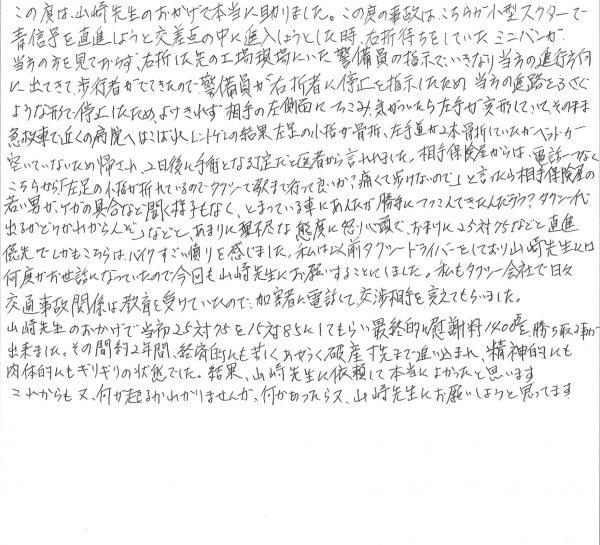 この度は、山﨑先生のおかげで本当に助りました。この度の事故は、こちらが小型スクターで
青信号を直進しようと交差点の中に進入しようとした時、右折待ちをしていたミニバンが
当方の方を見ておらず、右折した先の工場現場にいた警備員の指示でいきなり当方の進行方向
に出てきて、歩行者がでてきたので、警備員が右折者に停止を指示したため、当方の進路をふさぐ
ような形で停止したため、よけきれず相手の左側面につっこみ、気がついたら左手が変形していて、そのまま
急救車で近くの病院へはこばれ、レントゲンの結果左足の小指が骨折、左手首が2本骨折していたがベットが
空いていないため帰され、2日後に手術となる予定だと医者から言われました。相手保険屋からは、電話一つなく
こちらから「左足の小指が折れているのでタクシーで歌まで行って良いか?痛くて歩けないので」と言ったら相手保険屋の
若い男が、ケガの具合など聞く様子もなく、とまっている車にあんたが勝手につっこんできたんだろう?タクシー代
出るかどうかわからんぞ」などと、あまりに理不尽な態度に怒り心頭で、おまけに25対75などと直進
優先でしかもこちらはバイクすごい憤りを感じました。私は以前タクシードライバーをしており山﨑先生には
何度かお世話になっていたので今回も山﨑先生にお願いすることにしました。私もタクシー会社で日々
交通事故関係は教育を受けていたので、加害者に電話して、交渉相手を変えてもらいました。
山﨑先生のおかげで当初25対75を15対85にしてもらい最終的に慰謝料1400万を勝ち取る事が
出来ました。その間約2年間、経済的にも苦しくあやうく破産寸先まで追い込まれ、精神的にも
肉体的にもギリギリの状態でした。結果、山﨑先生に依頼して本当によかったと思います
これからも又、何が起るかわかりませんが、何かあったら又、山﨑先生にお願いしようと思ってます